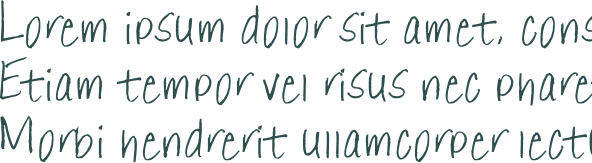 Lorem ipsum dolor sit amet, cons
Etiam tempor vel risus nec phare
Morbi hendrerit ullamcorper lectu